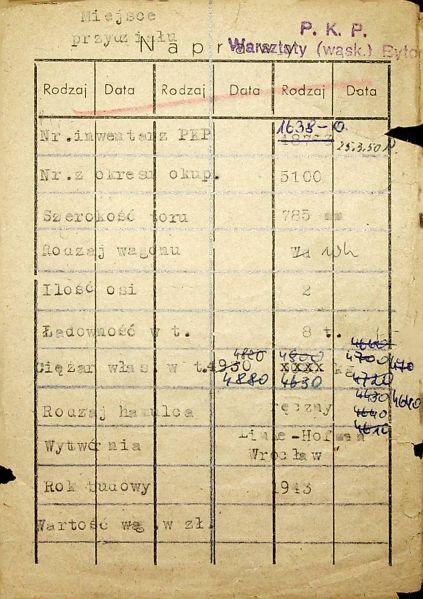 Miejsce
przydziału
Naprawy
P. K. P.
Warsztaty (wąsk.) Bytom
Rodzaj Data Rodzaj Data Rodzaj Data
Nr.inwentarz PKP 1638-0
25.3.50
Nr.z okresu okup. 5100
Szerokość toru 785 mm
Rodzaj wagonu
Ilość osi 2
Ładowność w t. 8 t.
4820 4800 4700
Ciężar włas. w t. 4950 xxxxx kg
4880 4630 4720
4640
Rodzaj hamulca ręczny
4640
4610
Wytwórnia Linke-Hofman
Wrocław
Rok budowy 1943
Wartość wg.w zł.